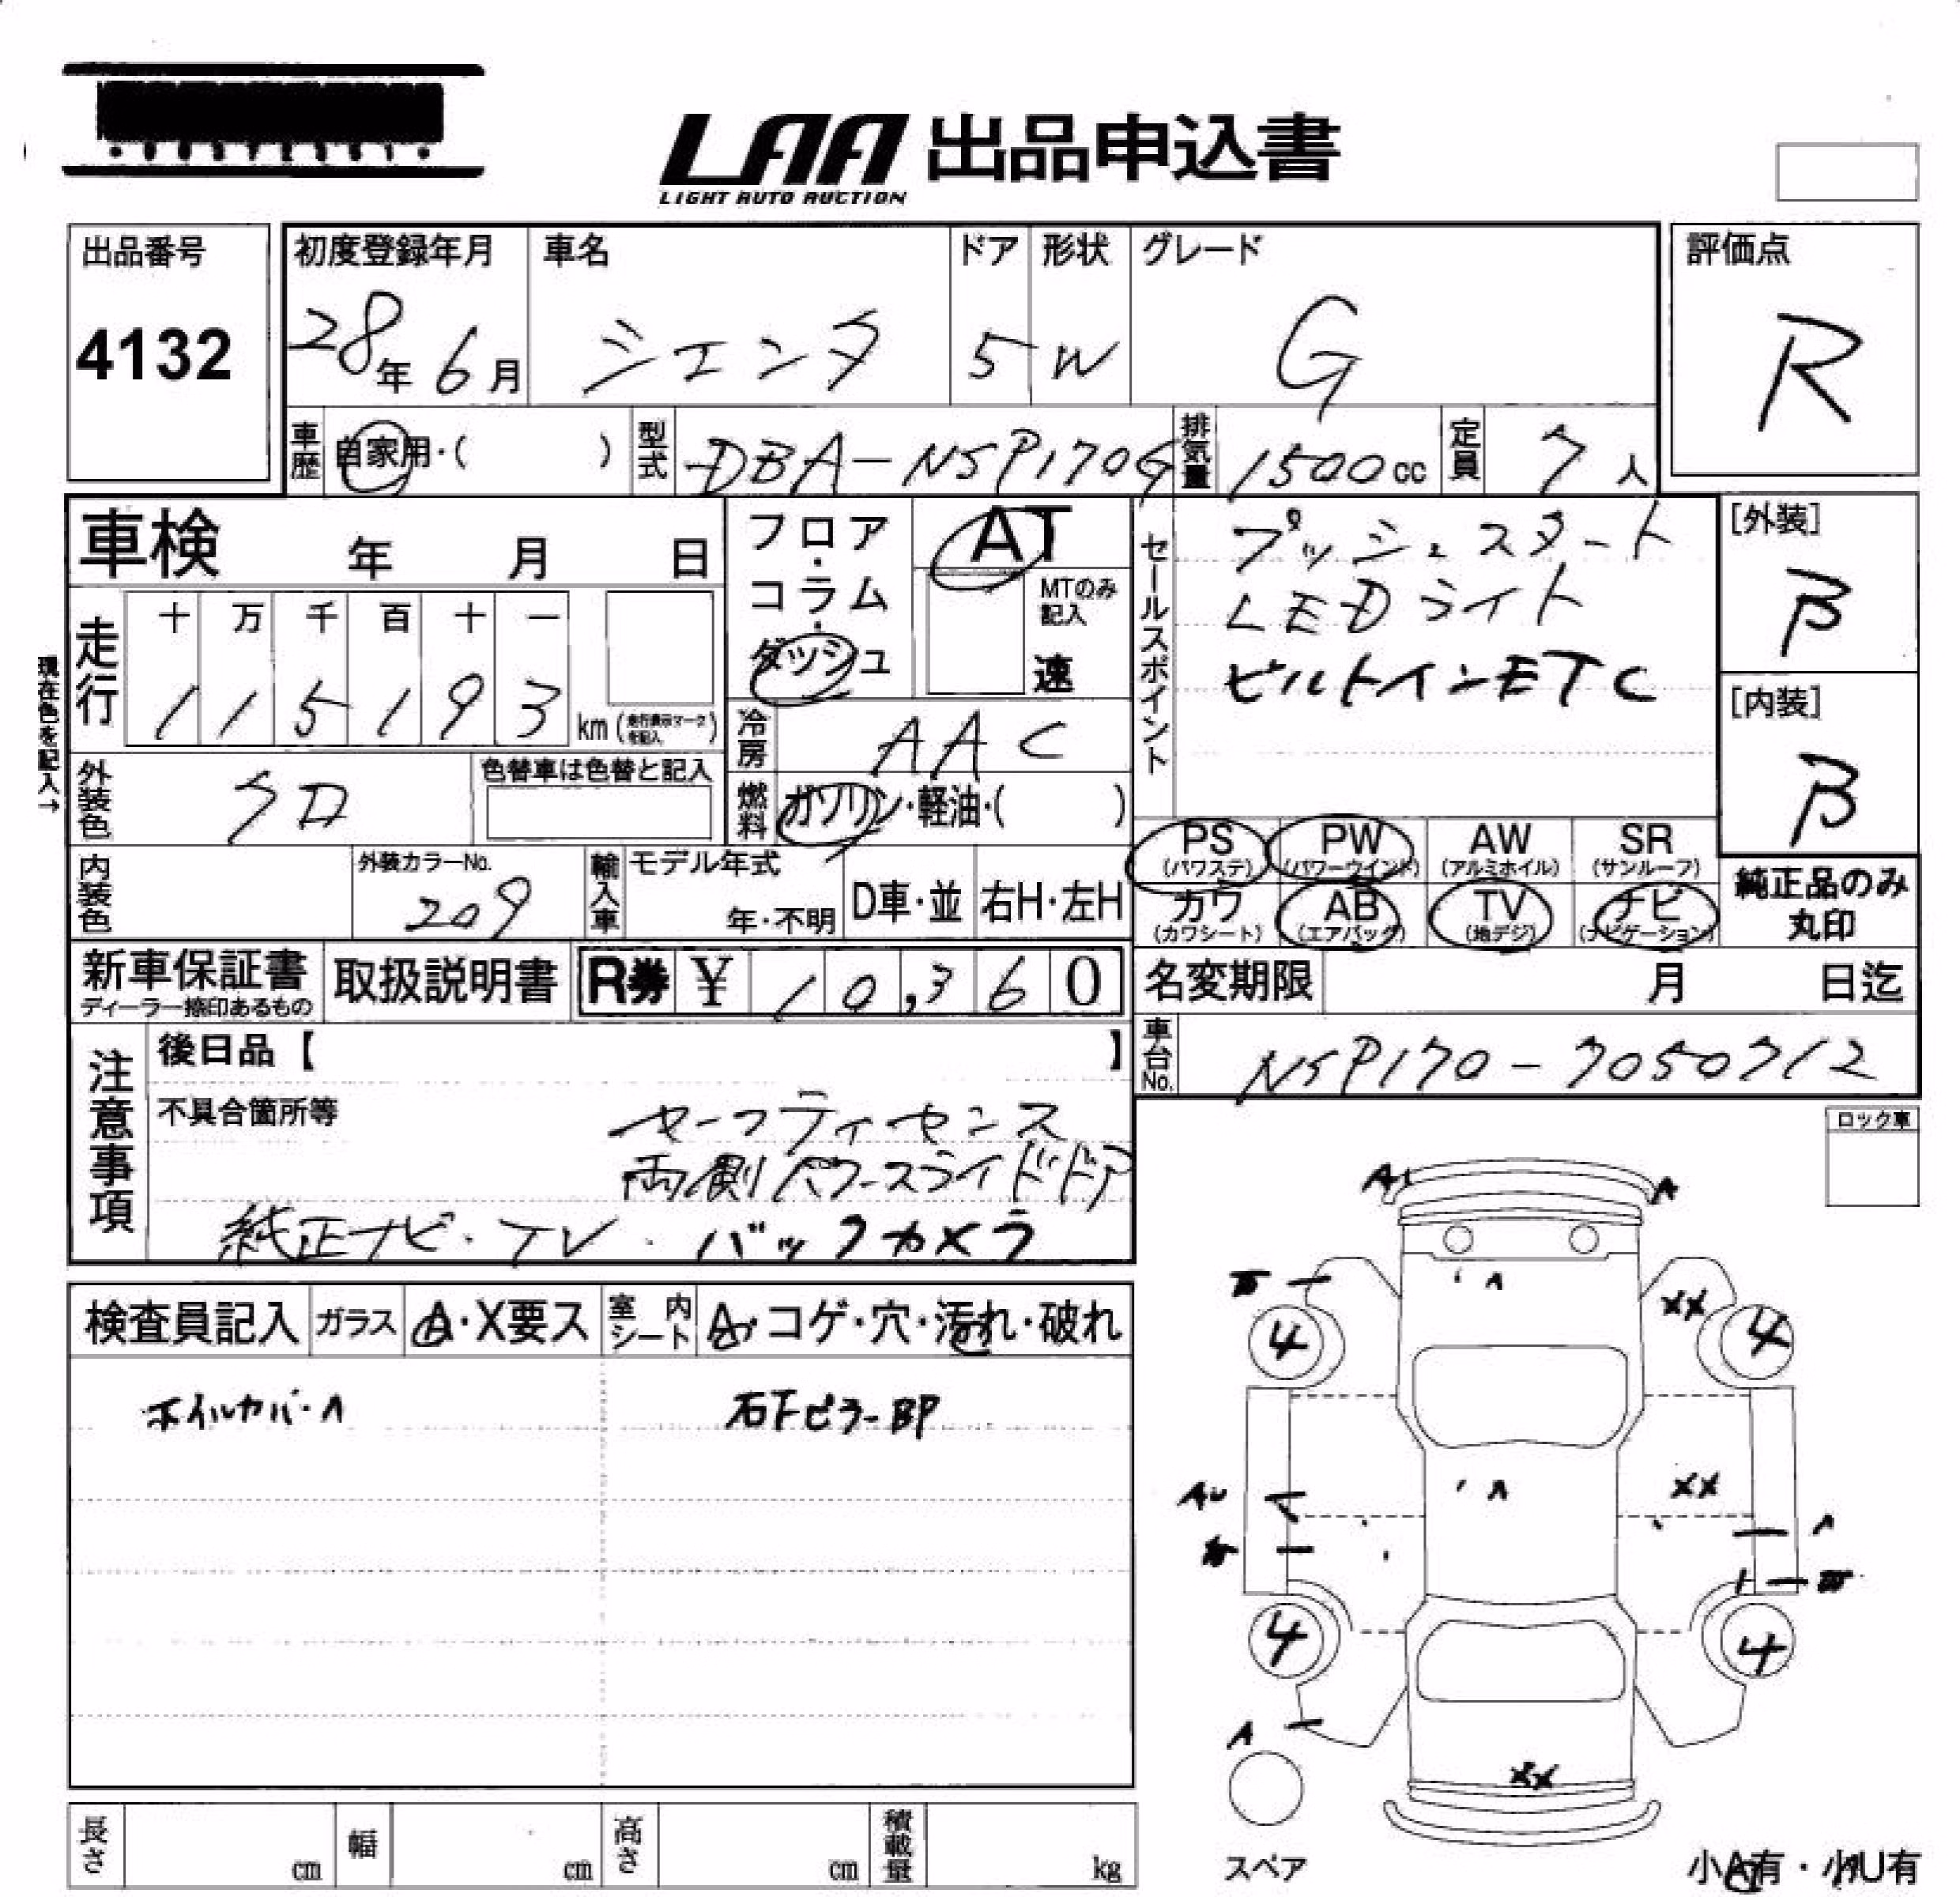 LAA 出品申込書
LIGHT AUTO AUCTION
出品番号
4132
初度登録年月
28年 6月
車名
シエンタ
ドア
5
形状
W
グレード
G
評価点
R
車歴 自家用・( )
型式 DBA-NSP170G
排気量 1500cc
定員 7人
車検 年 月 日
フロア・コラム・ダッシュ
AT
MTのみ記入
速
セールスポイント
プッシュスタート
LEDライト
ビルトインETC
[外装]
B
[内装]
B
現在色を記入→
走行
十 万 千 百 十 一
1 1 5 1 9 3 km (走行表示マークを記入)
冷房 AAC
燃料 ガソリン・軽油・( )
外装色 クロ
色替車は色替と記入
内装色
外装カラーNo.
209
輸入車
モデル年式
年・不明
D車・並
右H・左H
PS (パワステ)
PW (パワーウインド)
AW (アルミホイル)
SR (サンルーフ)
カワ (カワシート)
AB (エアバック)
TV (地デジ)
ナビ (ナビゲーション)
純正品のみ丸印
新車保証書
ディーラー捺印あるもの
取扱説明書
R券 ¥ 10,360
名変期限 月 日迄
車台No. NSP170-7050712
注意事項
後日品【 】
不具合箇所等
セーフティセンス
両側パワースライドドア
純正ナビ・TV・バックカメラ
ロック車
検査員記入
ガラス A・X要ス
室内シート A・コゲ・穴・汚れ・破れ
ホイルカバーA
右Fピラー BP
A
A
A
XX
4
4
A
XX
A
4
4
A
XX
スペア
小A有・小U有
長さ cm
幅 cm
高さ cm
積載量 kg